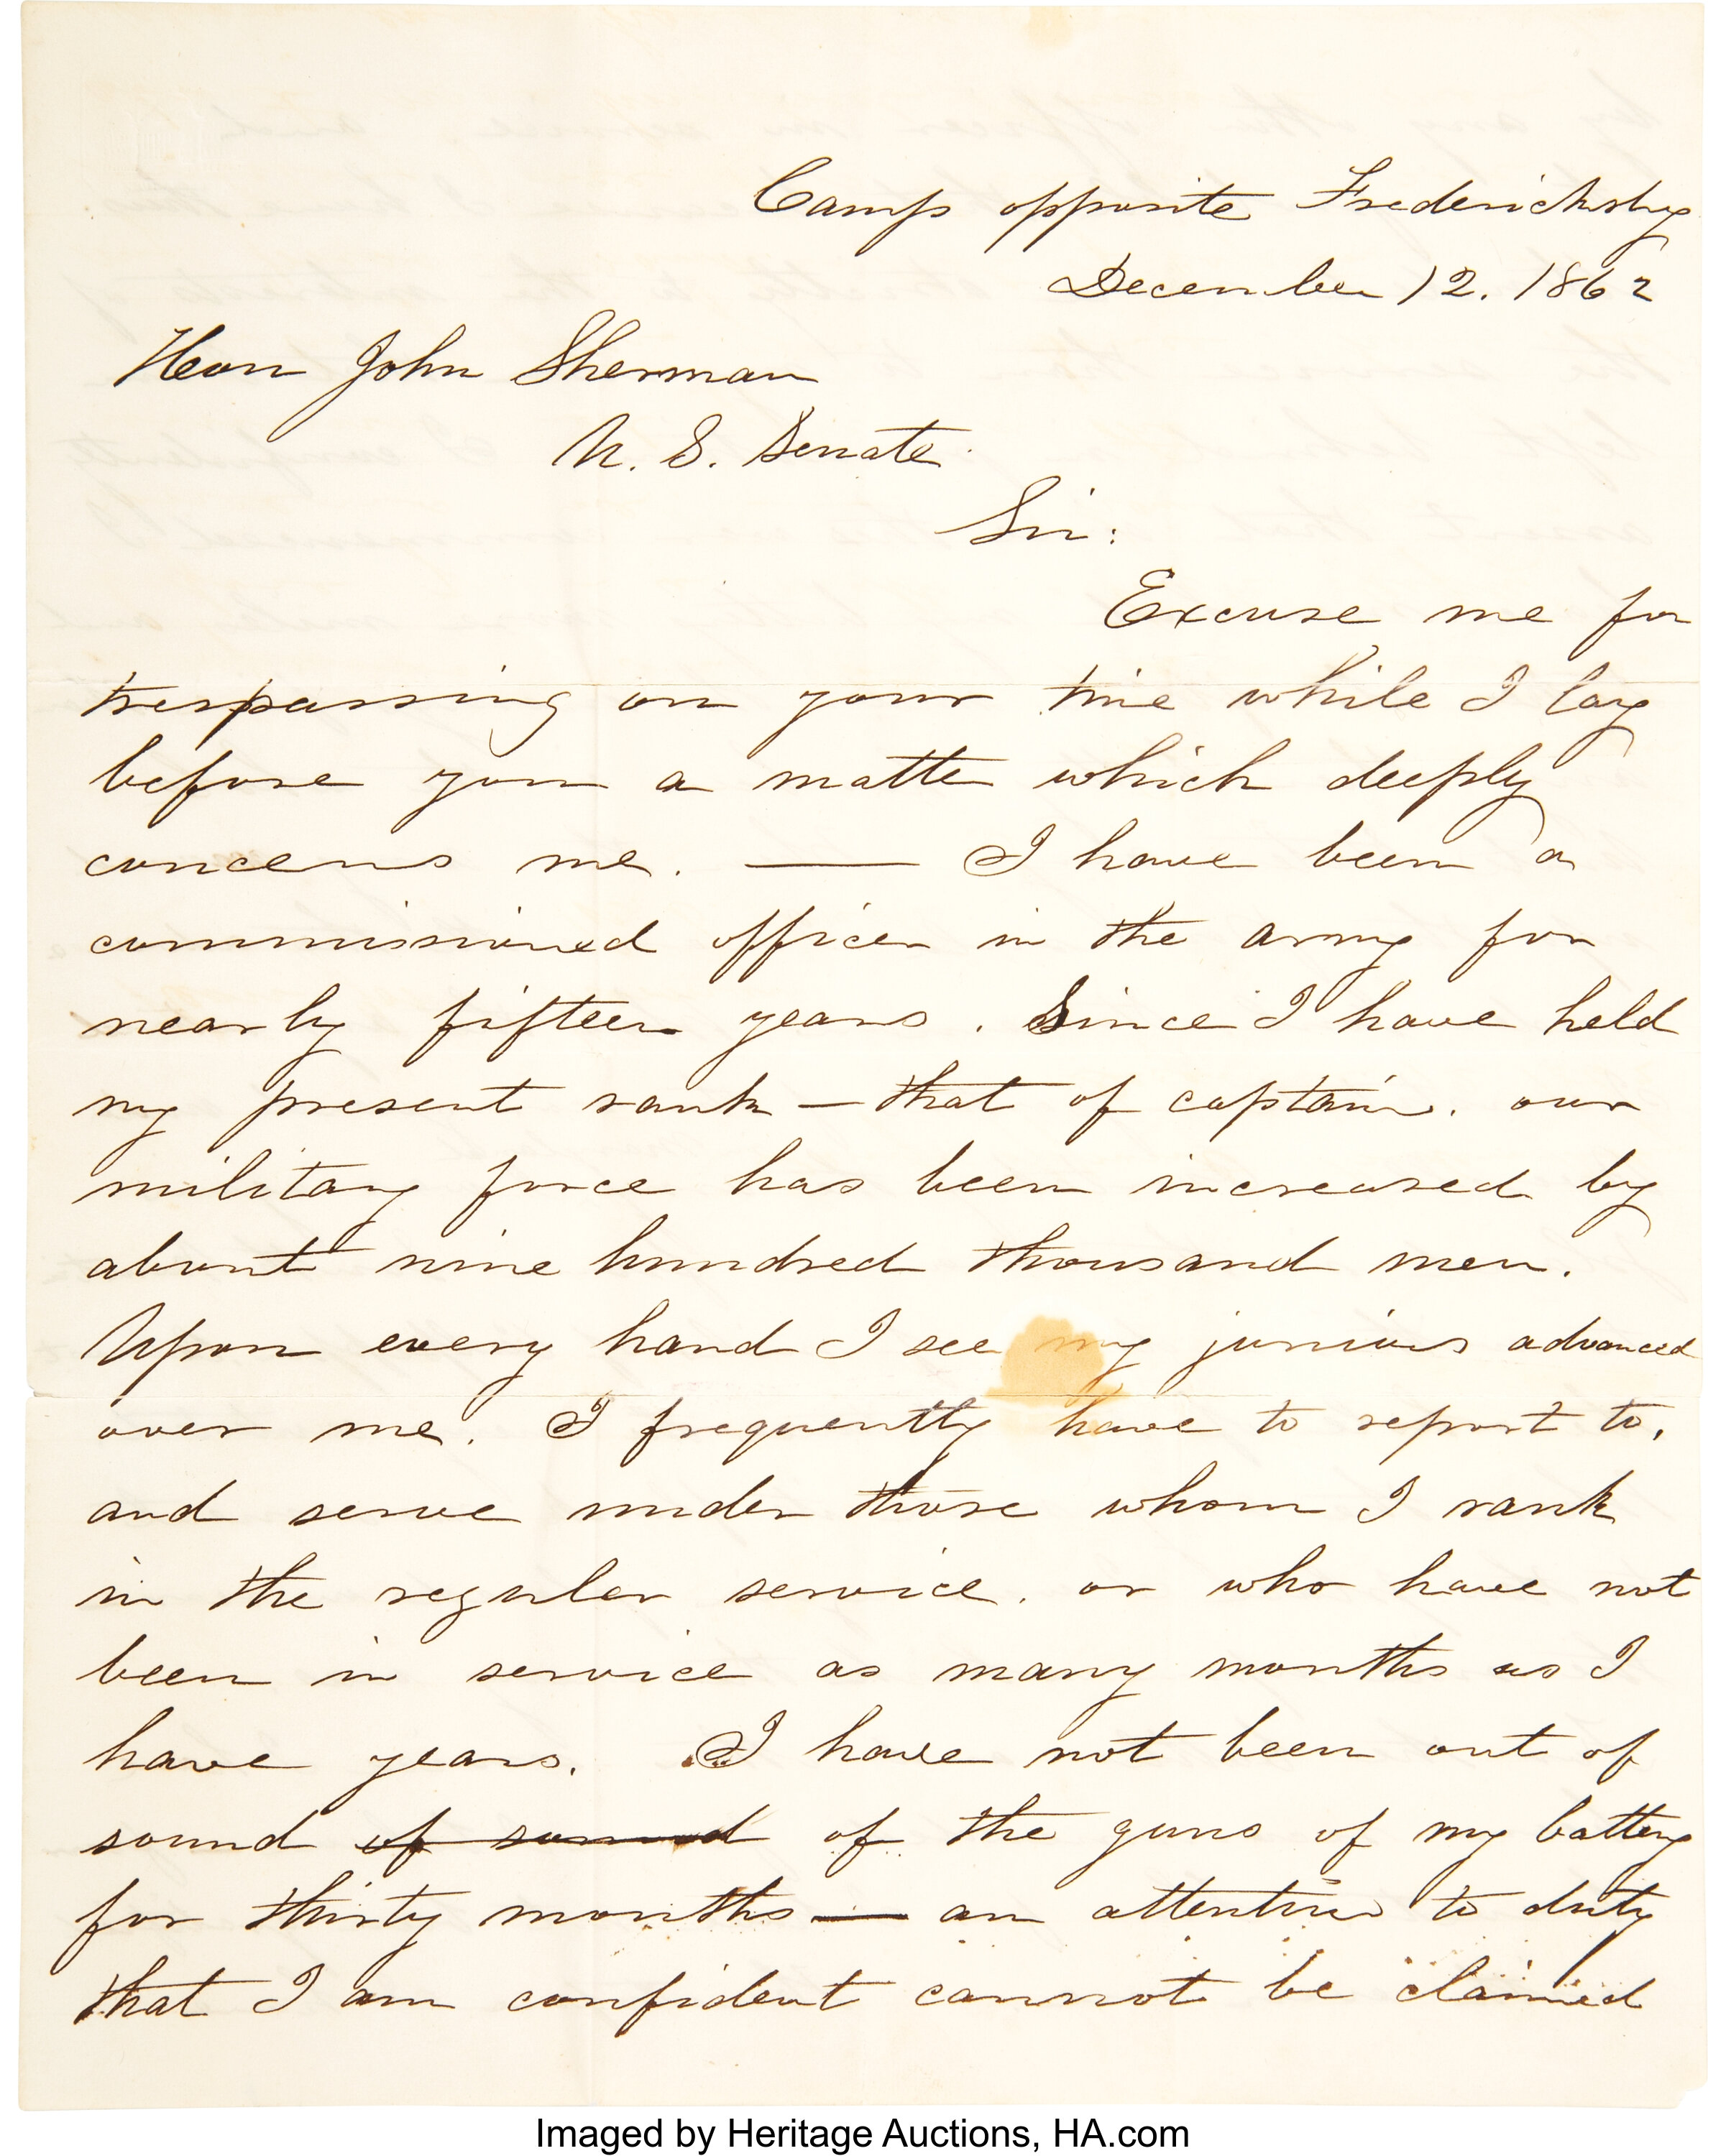 Camp opposite Fredericksbg
December 12. 1862
Hon John Sherman
U. S. Senate
Sir:
Excuse me for
trespassing on your time while I lay
before you a matter which deeply
concerns me. — I have been a
commissioned officer in the army for
nearly fifteen years. Since I have held
my present rank – that of captain. our
military force has been increased by
about nine hundred thousand men.
Upon every hand I see my juniors advanced
over me. I frequently have to report to,
and serve under those whom I rank
in the regular service. or who have not
been in service as many months as I
have years. I have not been out of
sound of sound of the guns of my battery
for thirty months — an attention to duty
that I am confident cannot be claimed
Imaged by Heritage Auctions, HA.com